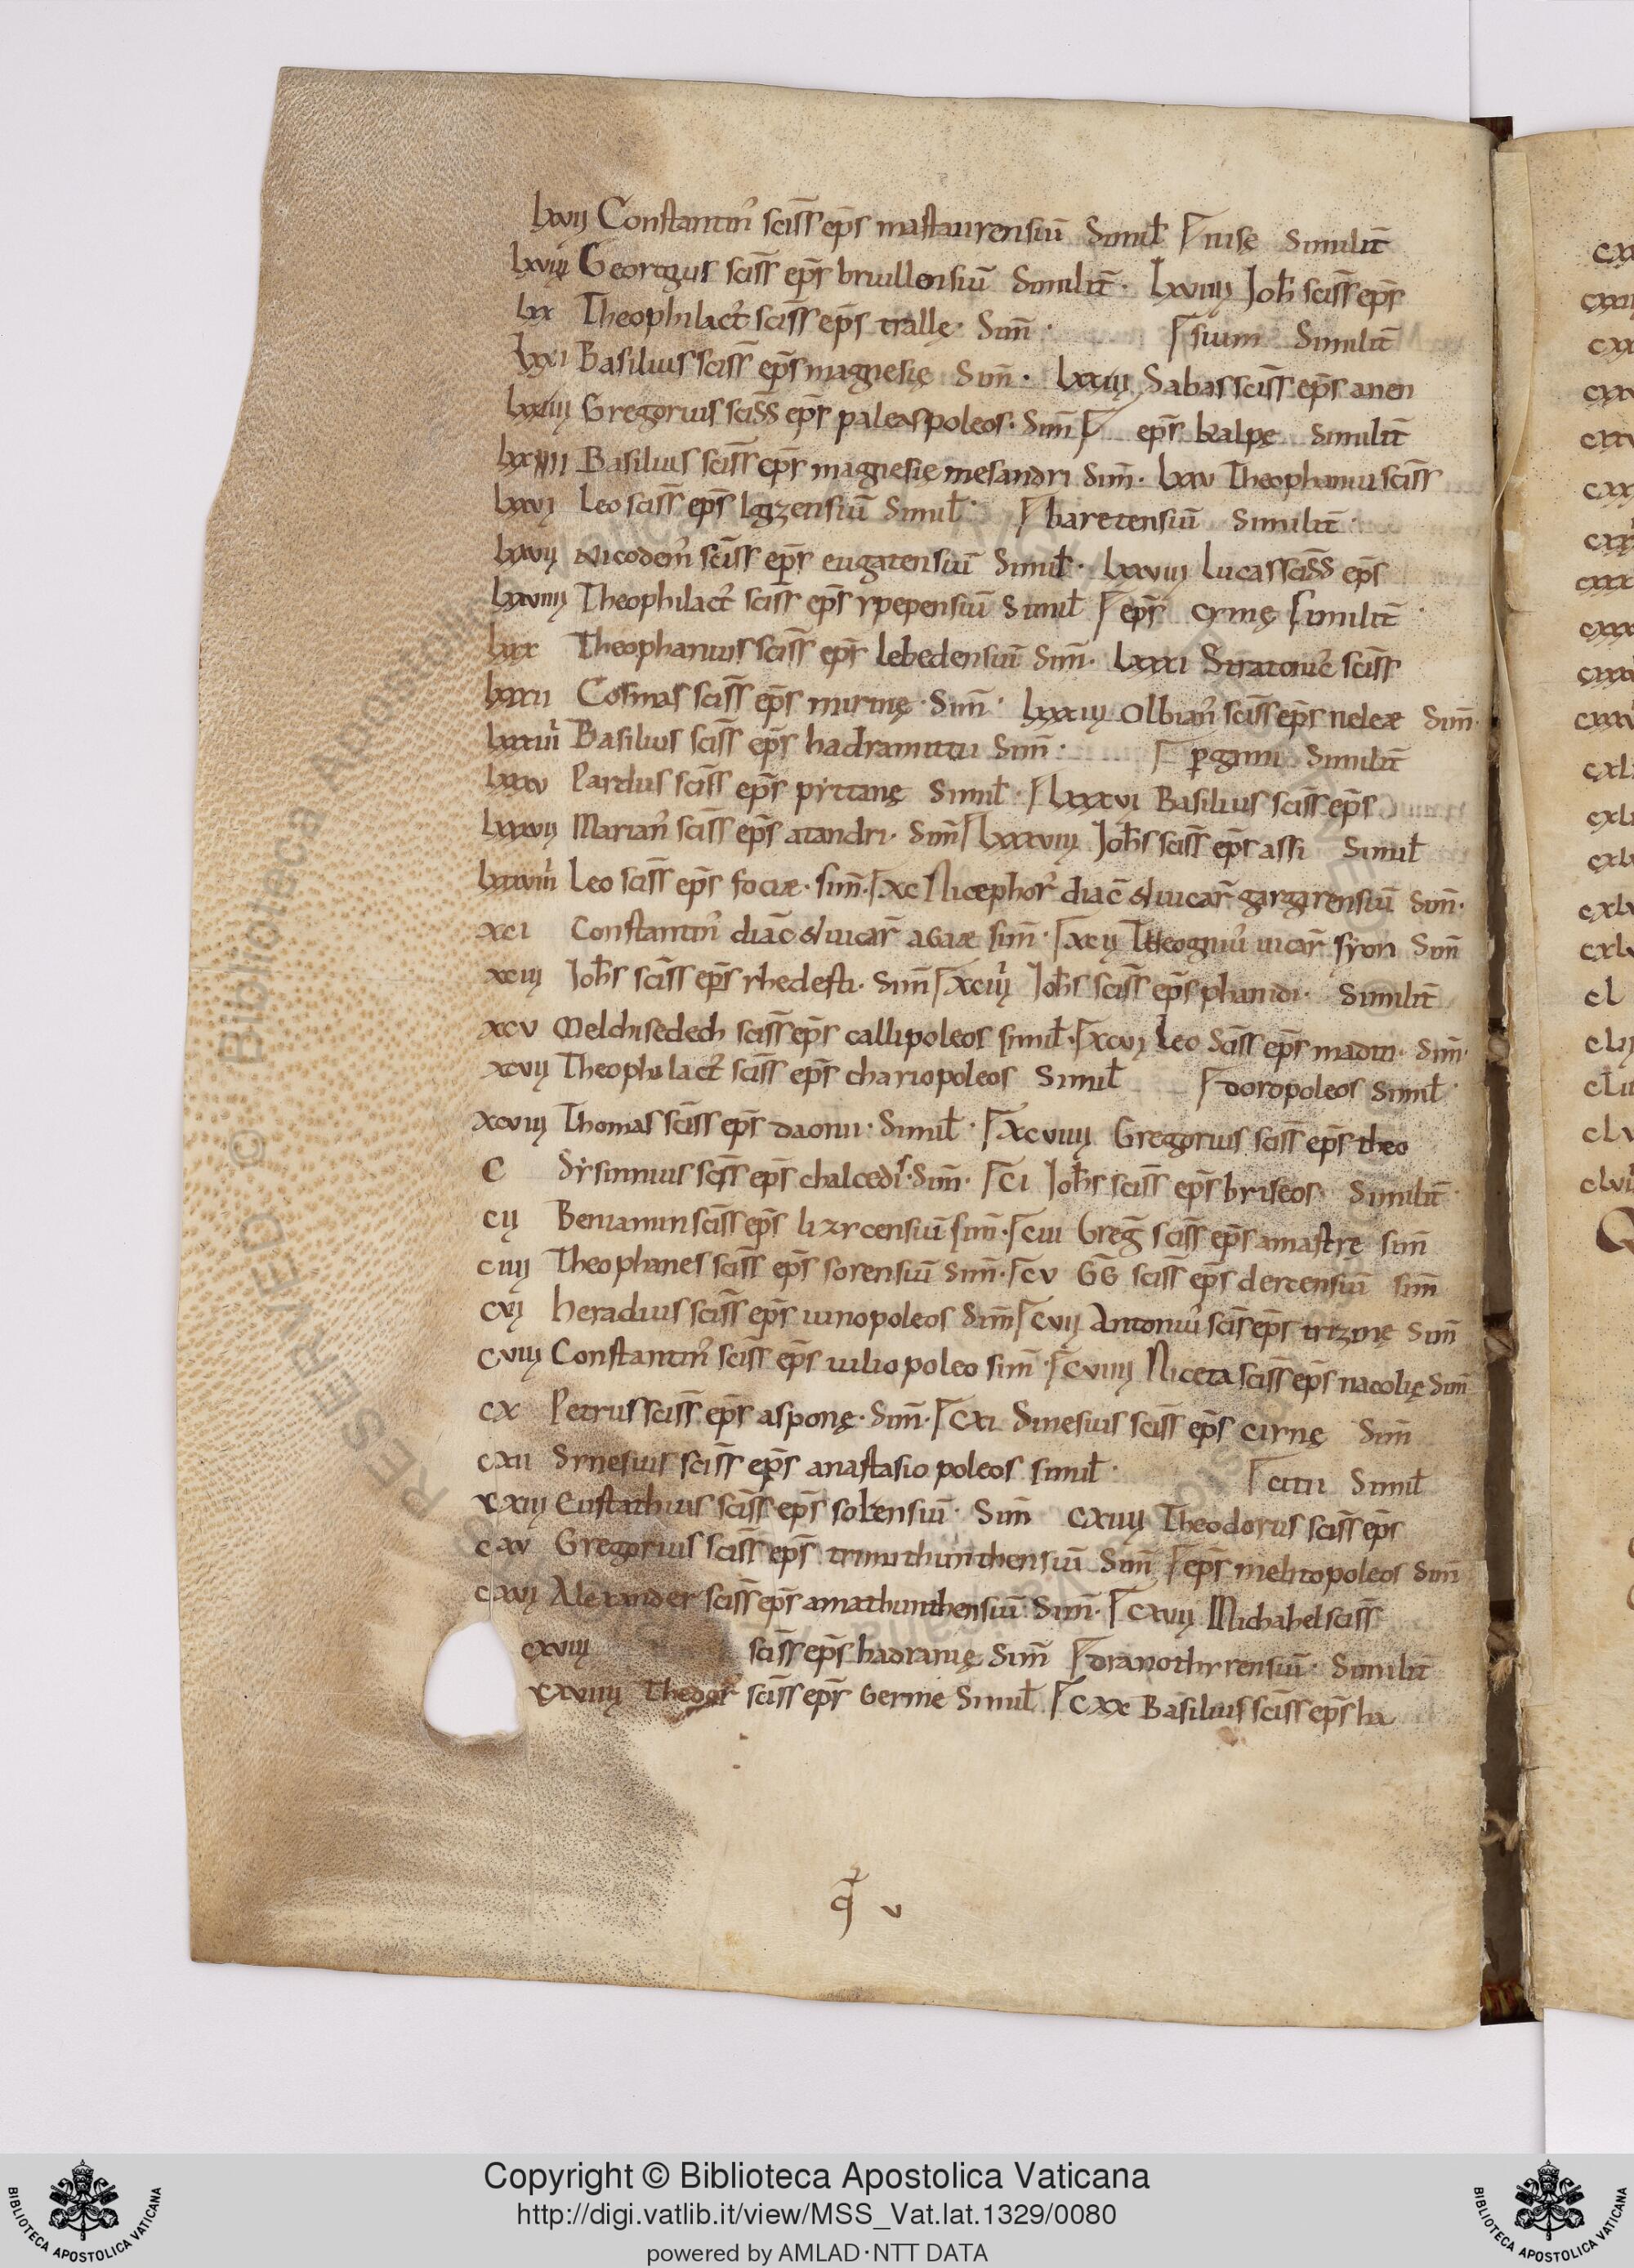 lxvii Constantin' sciss eps mastaurensiū Simil nise Similit
lxviii Georgius sciss eps briullensiū Similit. lxviiii Joh sciss eps
lxx Theophilact' sciss eps trallę. Sim. sium Similit
lxxi Basilius sciss eps magnesię Sim. lxxiii Sabas sciss eps anen
Gregorius sciss eps paleaspoleos. Sim eps kalpę Similit
Basilius sciss eps magnesię mesandri Sim. lxxv Theophanius sciss
lxxvi Leo sciss eps Simil. baretensiū Similit.
lxxvii Nicodem' sciss eps eugatensiū Simil. lxxviii Lucas sciss eps
lxxviiii Theophilact' sciss eps ypepensiū Simil eps cymę Similit
lxxx Theophanius sciss eps lebedensiū Sim. lxxxi Stratonic' sciss
lxxxii Cosmas sciss eps mirinę. Sim. lxxxiii Olbian' sciss eps neleæ Sim.
lxxxiiii Basilius sciss eps hadramittii Sim. pgami Similit
lxxxv Pardus sciss eps pittanę Simil. lxxxvi Basilius sciss eps
lxxxvii Marian' sciss eps atandri. Sim lxxxviii Johs sciss eps assi Simil
lxxxviiii Leo sciss eps fociæ. sim. xc Nicephor' diac & uicar gargarensiū Sim.
xci Constantin' diac & uicar agaæ sim. xcii Theogniu' uicar syon Sim
xciii Johs sciss eps rhedesti. Sim xciiii Johs sciss eps phanidi. Similit
xcv Melchisedech sciss eps callipoleos simil. xcvi Leo sciss eps maditi. Sim.
xcvii Theophilact' sciss eps chariopoleos Simil doropoleos Simil.
xcviii Thomas sciss eps daonii. Simil. xcviiii Gregorius sciss eps theo
C Sysinnius sciss eps chalcedi. Sim. ci Johs sciss eps briseos. Similit.
cii Beniamin sciss eps lizycensiū sim. ciii Greg sciss eps amastre sim
ciiii Theophanes sciss eps sorensiū Sim. cv GG sciss eps dercensiū sim
cvi heradius sciss eps uinopoleos Sim cvii Antoniu' scis eps trizinę Sim
cviii Constantin' sciss eps uiliopoleo sim. cviiii Niceta sciss eps nacolię Sim
cx Petrus sciss eps asponę. Sim. cxi Sinesius sciss eps cirnę Sim
cxii Synesius sciss eps anastasiopoleos simil. citii Simil
cxiii Eustathius sciss eps sobensiū. Sim cxiiii Theodorus sciss eps
cxv Gregorius sciss eps trimithunthensiū Sim eps melitopoleos Sim
cxvi Alexander sciss eps amathunthensiū Sim. cxvii Michahel sciss
cxviii sciss eps hadranię Sim dranothyrensiū. Similit
cxviiii Theodor' sciss eps Germe Simil cxx Basilius sciss eps ha
q v
Copyright © Biblioteca Apostolica Vaticana
http://digi.vatlib.it/view/MSS_Vat.lat.1329/0080
powered by AMLAD·NTT DATA
BIBLIOTECA APOSTOLICA VATICANA
BIBLIOTECA APOSTOLICA VATICANA